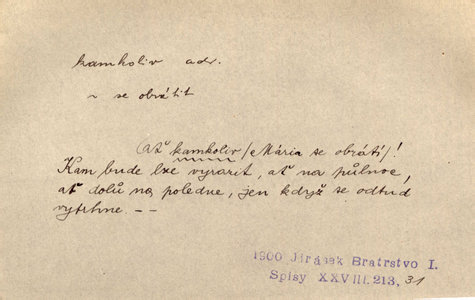 kamkoliv adv.
~ se obrátit
Ať kamkoliv /Mária se obrátí/!
Kam bude lze vyrazit, ať na půlnoc,
ať dolů na poledne, jen když se odtud
vytrhne. --
1900 Jirásek Bratrstvo I.
Spisy XXVIII.213, 31